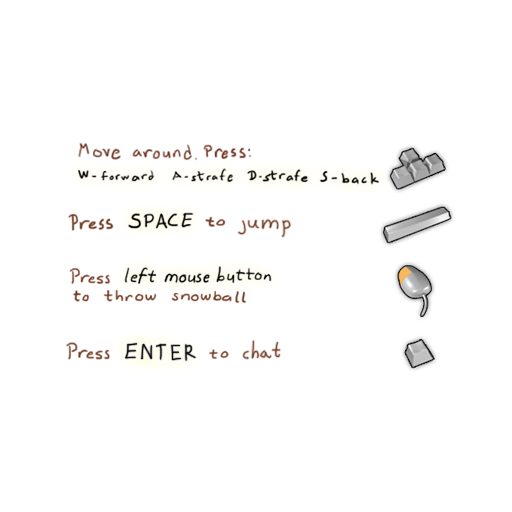 Move around. Press:
W-forward A-strafe D-strafe S-back
Press SPACE to jump
Press left mouse button
to throw snowball
Press ENTER to chat